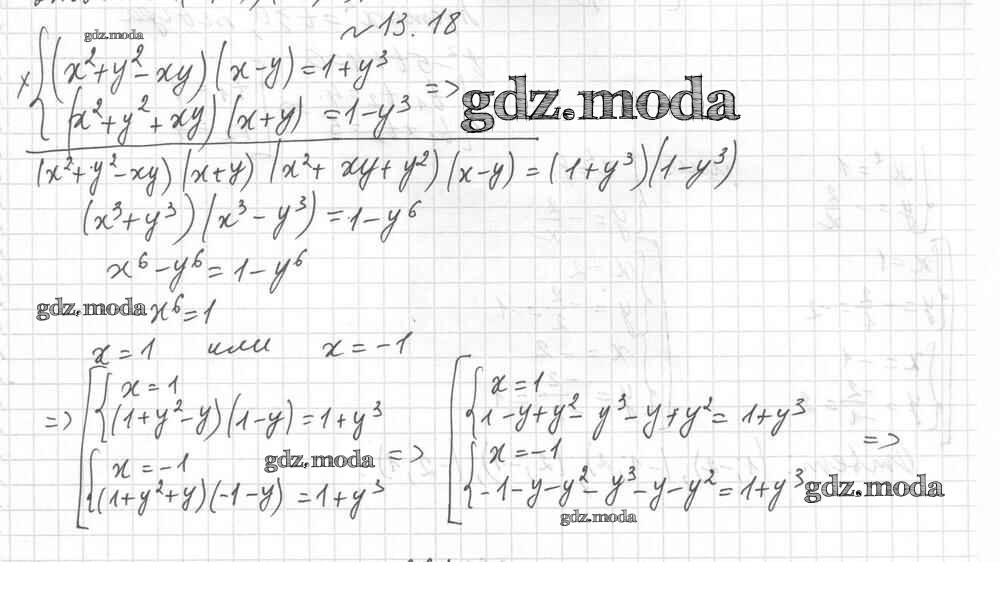 №13.18
gdz.moda
x { (x²+y²-xy)(x-y)=1+y³
{ (x²+y²+xy)(x+y)=1-y³ =>
gdz.moda
(x²+y²-xy)(x+y)(x²+xy+y²)(x-y)=(1+y³)(1-y³)
(x³+y³)(x³-y³)=1-y⁶
x⁶-y⁶=1-y⁶
gdz.moda x⁶=1
x=1 или x=-1
=> [ { x=1
(1+y²-y)(1-y)=1+y³
{ x=-1
(1+y²+y)(-1-y)=1+y³
gdz.moda =>
[ { x=1
1-y+y²-y³-y+y²=1+y³
{ x=-1
-1-y-y²-y³-y-y²=1+y³
=>
gdz.moda
gdz.moda